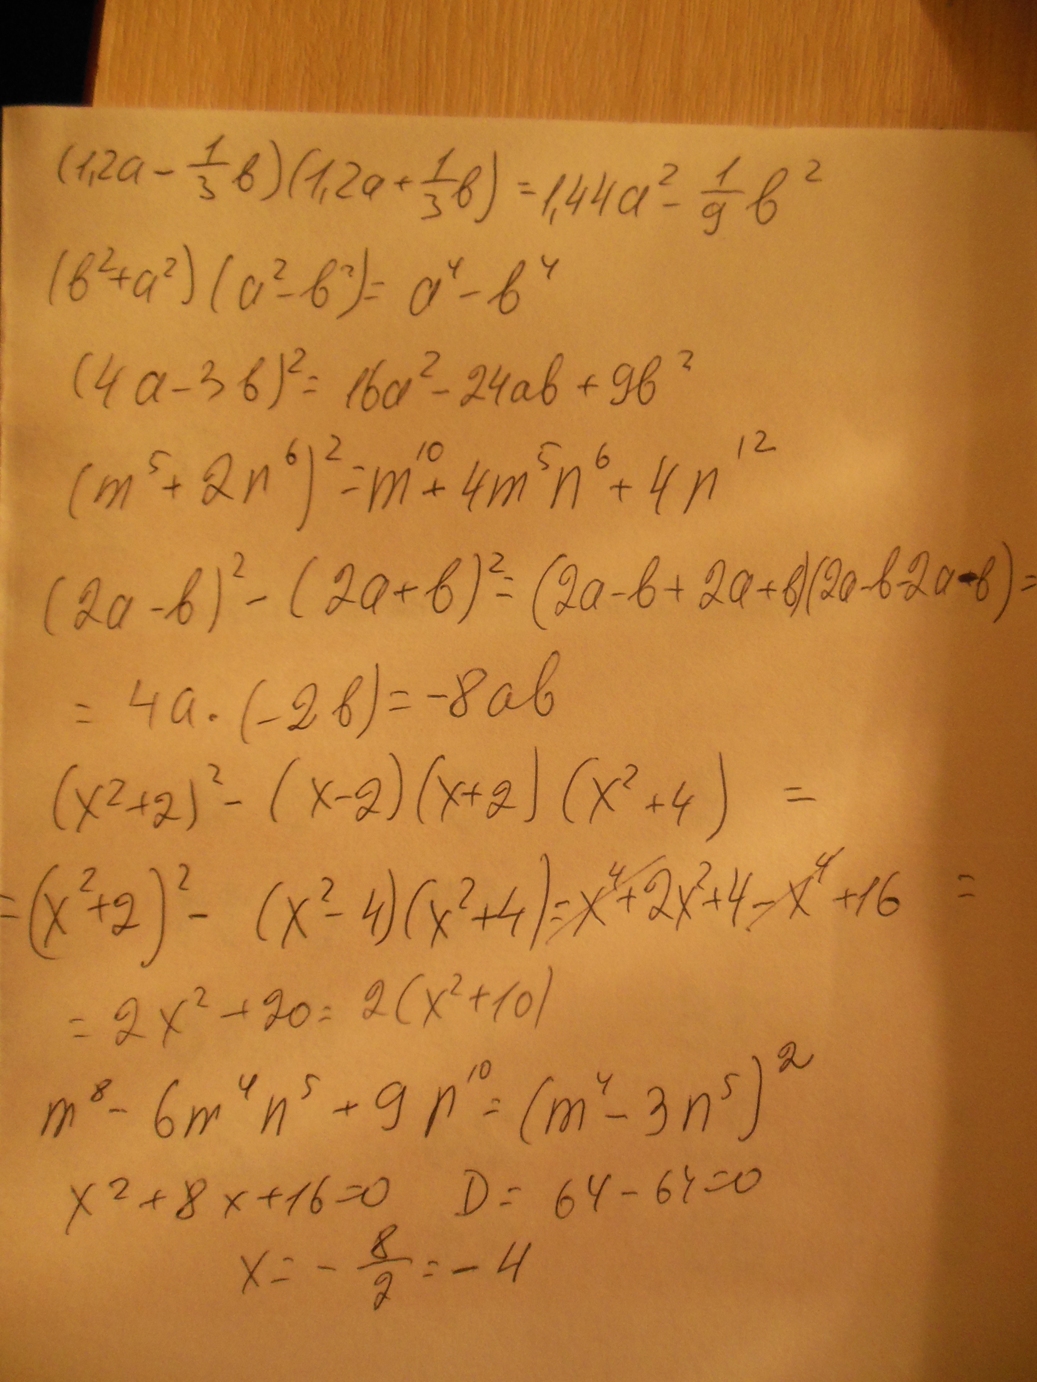 (1,2a - 1/3 b)(1,2a + 1/3 b) = 1,44a² - 1/9 b²
(b² + a²)(a² - b²) = a⁴ - b⁴
(4a - 3b)² = 16a² - 24ab + 9b²
(m⁵ + 2n⁶)² = m¹⁰ + 4m⁵n⁶ + 4n¹²
(2a - b)² - (2a + b)² = (2a - b + 2a + b)(2a - b - 2a - b) =
= 4a · (-2b) = -8ab
(x² + 2)² - (x - 2)(x + 2)(x² + 4) =
= (x² + 2)² - (x² - 4)(x² + 4) = x⁴ + 2x² + 4 - x⁴ + 16 =
= 2x² + 20 = 2(x² + 10)
m⁸ - 6m⁴n⁵ + 9n¹⁰ = (m⁴ - 3n⁵)²
x² + 8x + 16 = 0 D = 64 - 64 = 0
x = - 8/2 = -4